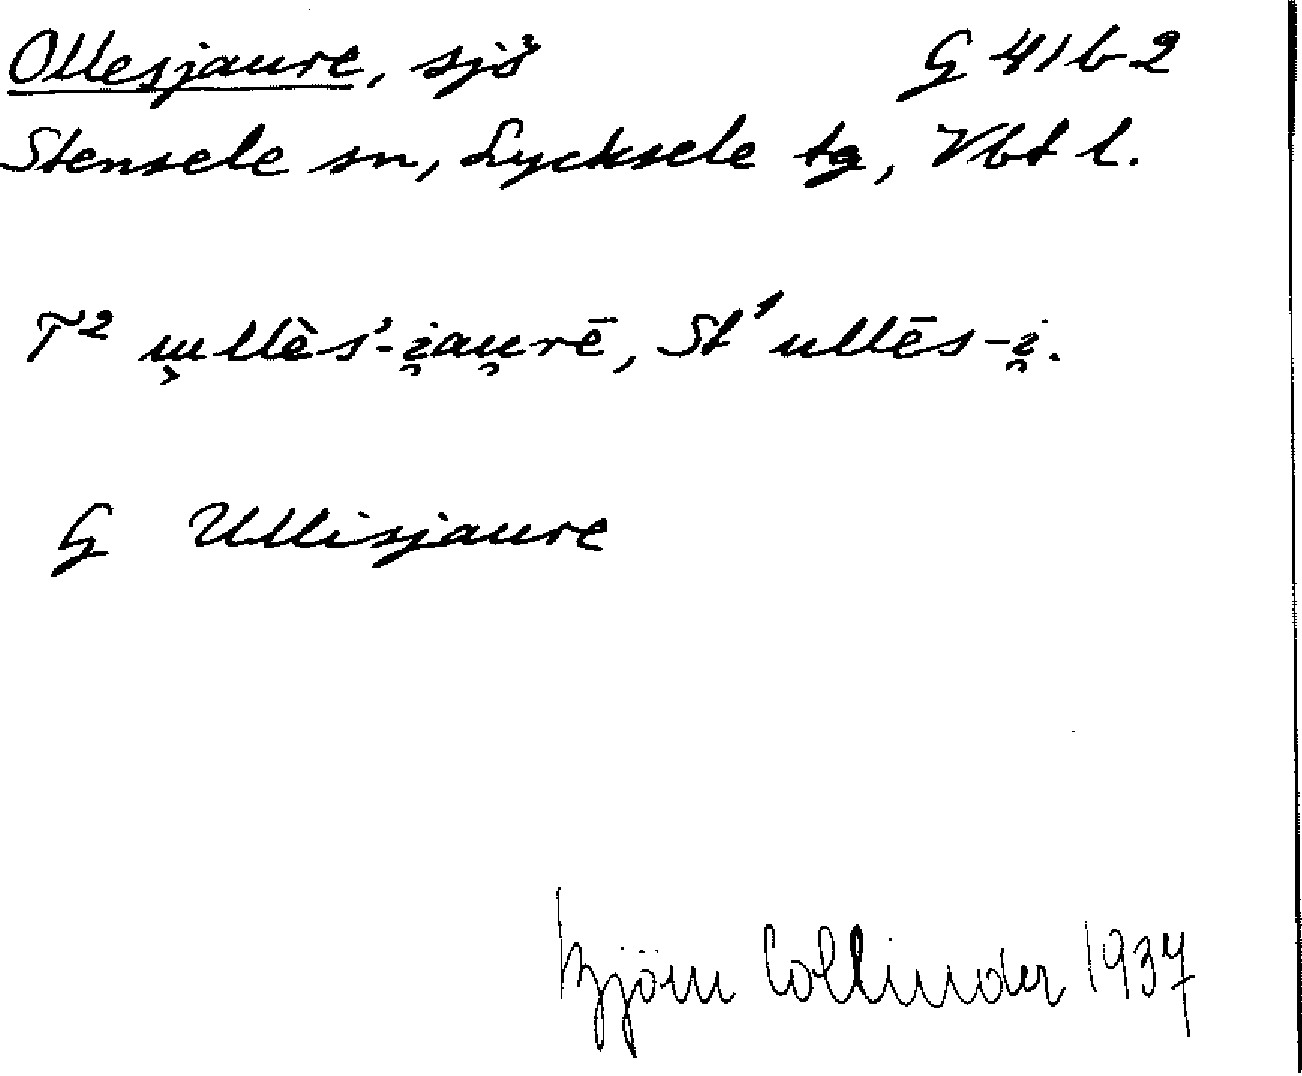 Ollesjaure, sjö G 41 b 2
Stensele sn, Lycksele tg, Vbt l.
T² ɯ̭llès'-i̯au̯rē, St¹ ullēs-i̯.
G Ullisjaure
Björn Collinder 1937